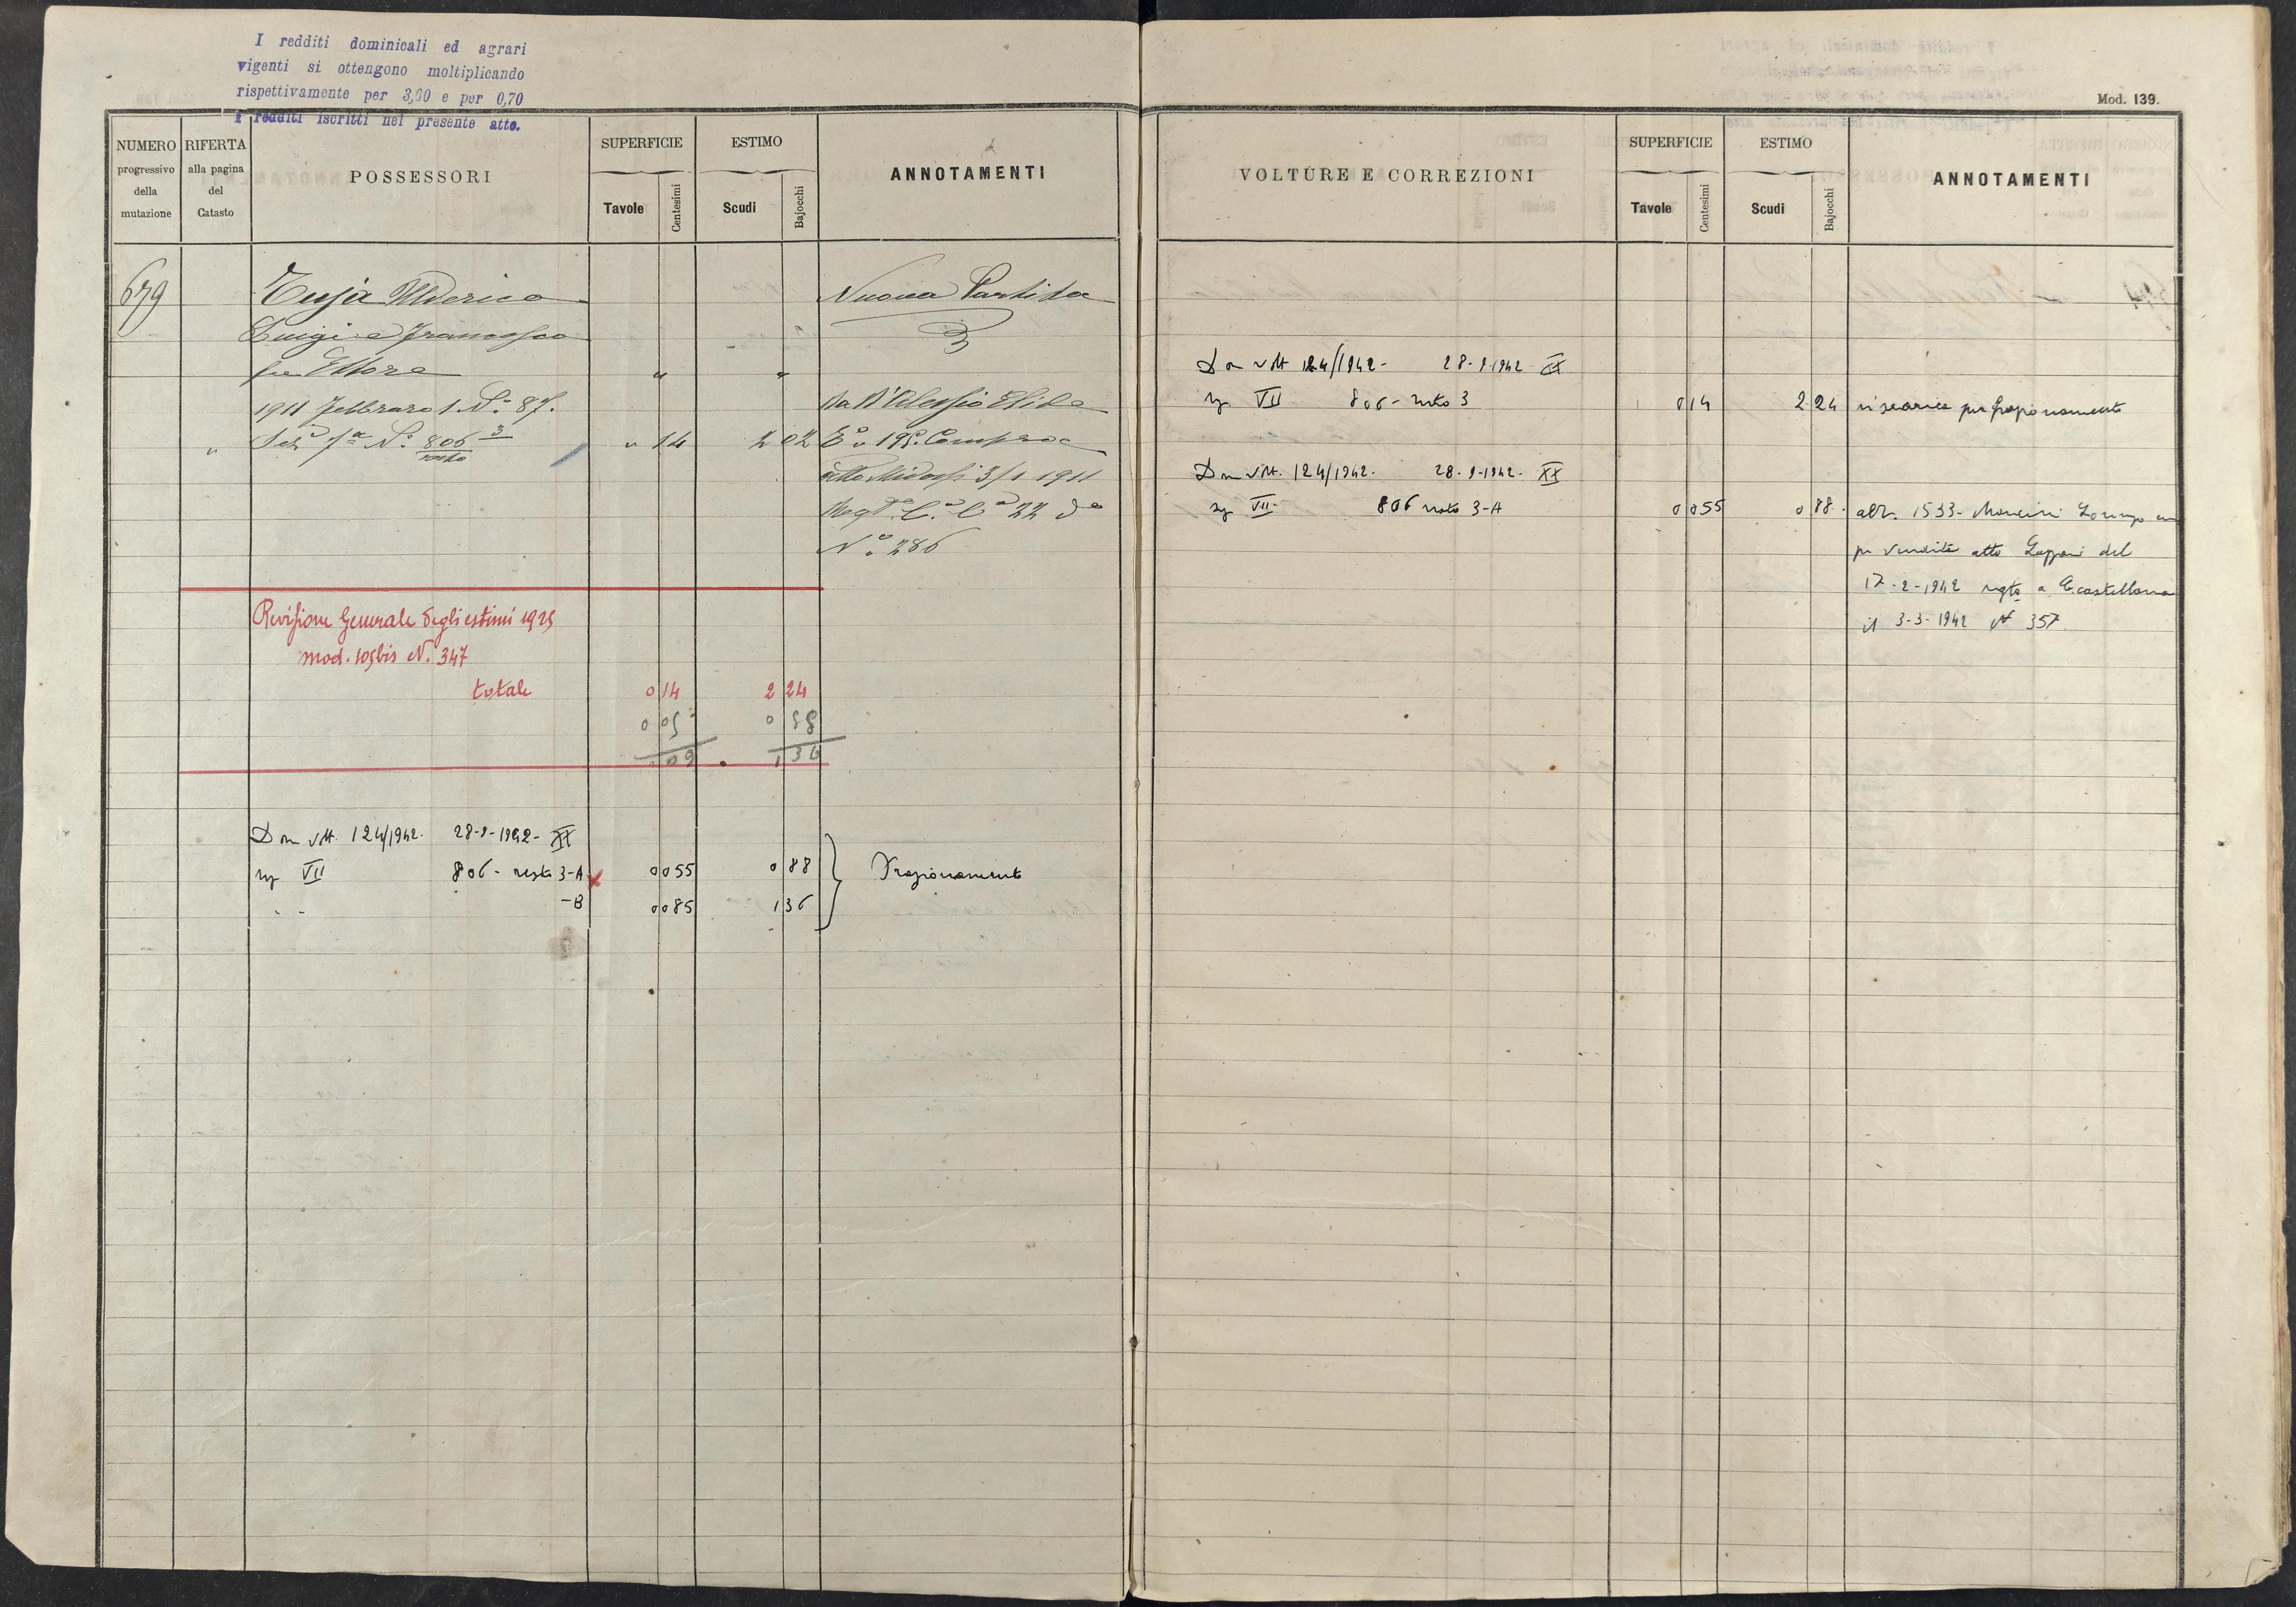 I redditi dominicali ed agrari
vigenti si ottengono moltiplicando
rispettivamente per 3,60 e per 0,70
i redditi iscritti nel presente atto.
NUMERO progressivo della mutazione
RIFERTA alla pagina del Catasto
POSSESSORI
SUPERFICIE
Tavole
Centesimi
ESTIMO
Scudi
Bajocchi
ANNOTAMENTI
679
Luigi e Francesco
fu Ettore
1911 Febbraro 1. N.º 87.
N.º 806 3 resto
" 14
2 02
Nuova Partita
Da D'Alessio Elide
atto 3/1 1911
N.º 286
Revisione Generale degli estimi 1925
mod. 109bis N. 347
totale 0 14 2 24
0 05 0 88
09 1 36
Dom volt. 124/1942. 28-9-1942- XX
sez VII 806- resto 3-A 0 055 0 88
" " -B 0 085 1 36
Frazionamento
Mod. 139.
VOLTURE E CORREZIONI
SUPERFICIE
Tavole
Centesimi
ESTIMO
Scudi
Bajocchi
ANNOTAMENTI
Dom volt 124/1942- 28-9-1942 XX
sez VII 806- resto 3 0 14 2 24 si scarica per frazionamento
Dom volt. 124/1942. 28-9-1942- XX
sez VII- 806 resto 3-A 0 055 0 88 all. 1533- Mancini Lorenzo
per vendita atto del
17-2-1942 regto a C.castellana
il 3-3-1942 N 357